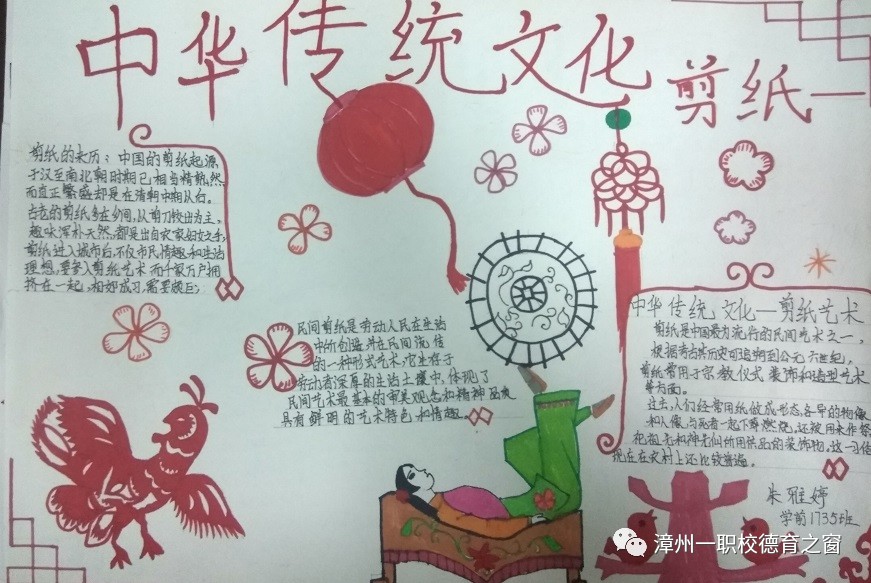 中华传统文化
剪纸一
剪纸的来历：中国的剪纸起源
于汉至南北朝时期已相当精熟，然
而真正繁盛却是在清朝中期以后。
古老的剪纸多在乡间，从剪刀铰出为主，
趣味浑朴天然，都是出自农家妇女之手，
剪纸进入城市后，不仅市民情趣和生活
理想，要多入剪纸艺术而千家万户拥
挤在一起，相如成习，需要颇巨；
民间剪纸是劳动人民在生活
中所创造并在民间流传
的一种形式艺术，它生存于
劳动者深厚的生活土壤中，体现了
民间艺术最基本的审美观念和精神品质
具有鲜明的艺术特色和情趣。
中华传统文化一剪纸艺术
剪纸是中国最为流行的民间艺术之一，
根据考古其历史可追朔到公元六世纪。
剪纸常用于宗教仪式装饰和造型艺术
等方面。
过去，人们经常用纸做成形态各异的物像
和人像，与死者一起下葬燃烧，还被用来作祭
祀祖先和神仙所用供品的装饰物。这一习俗
现在在农村上还比较普遍。
朱雅婷
学前1735班
漳州一职校德育之窗